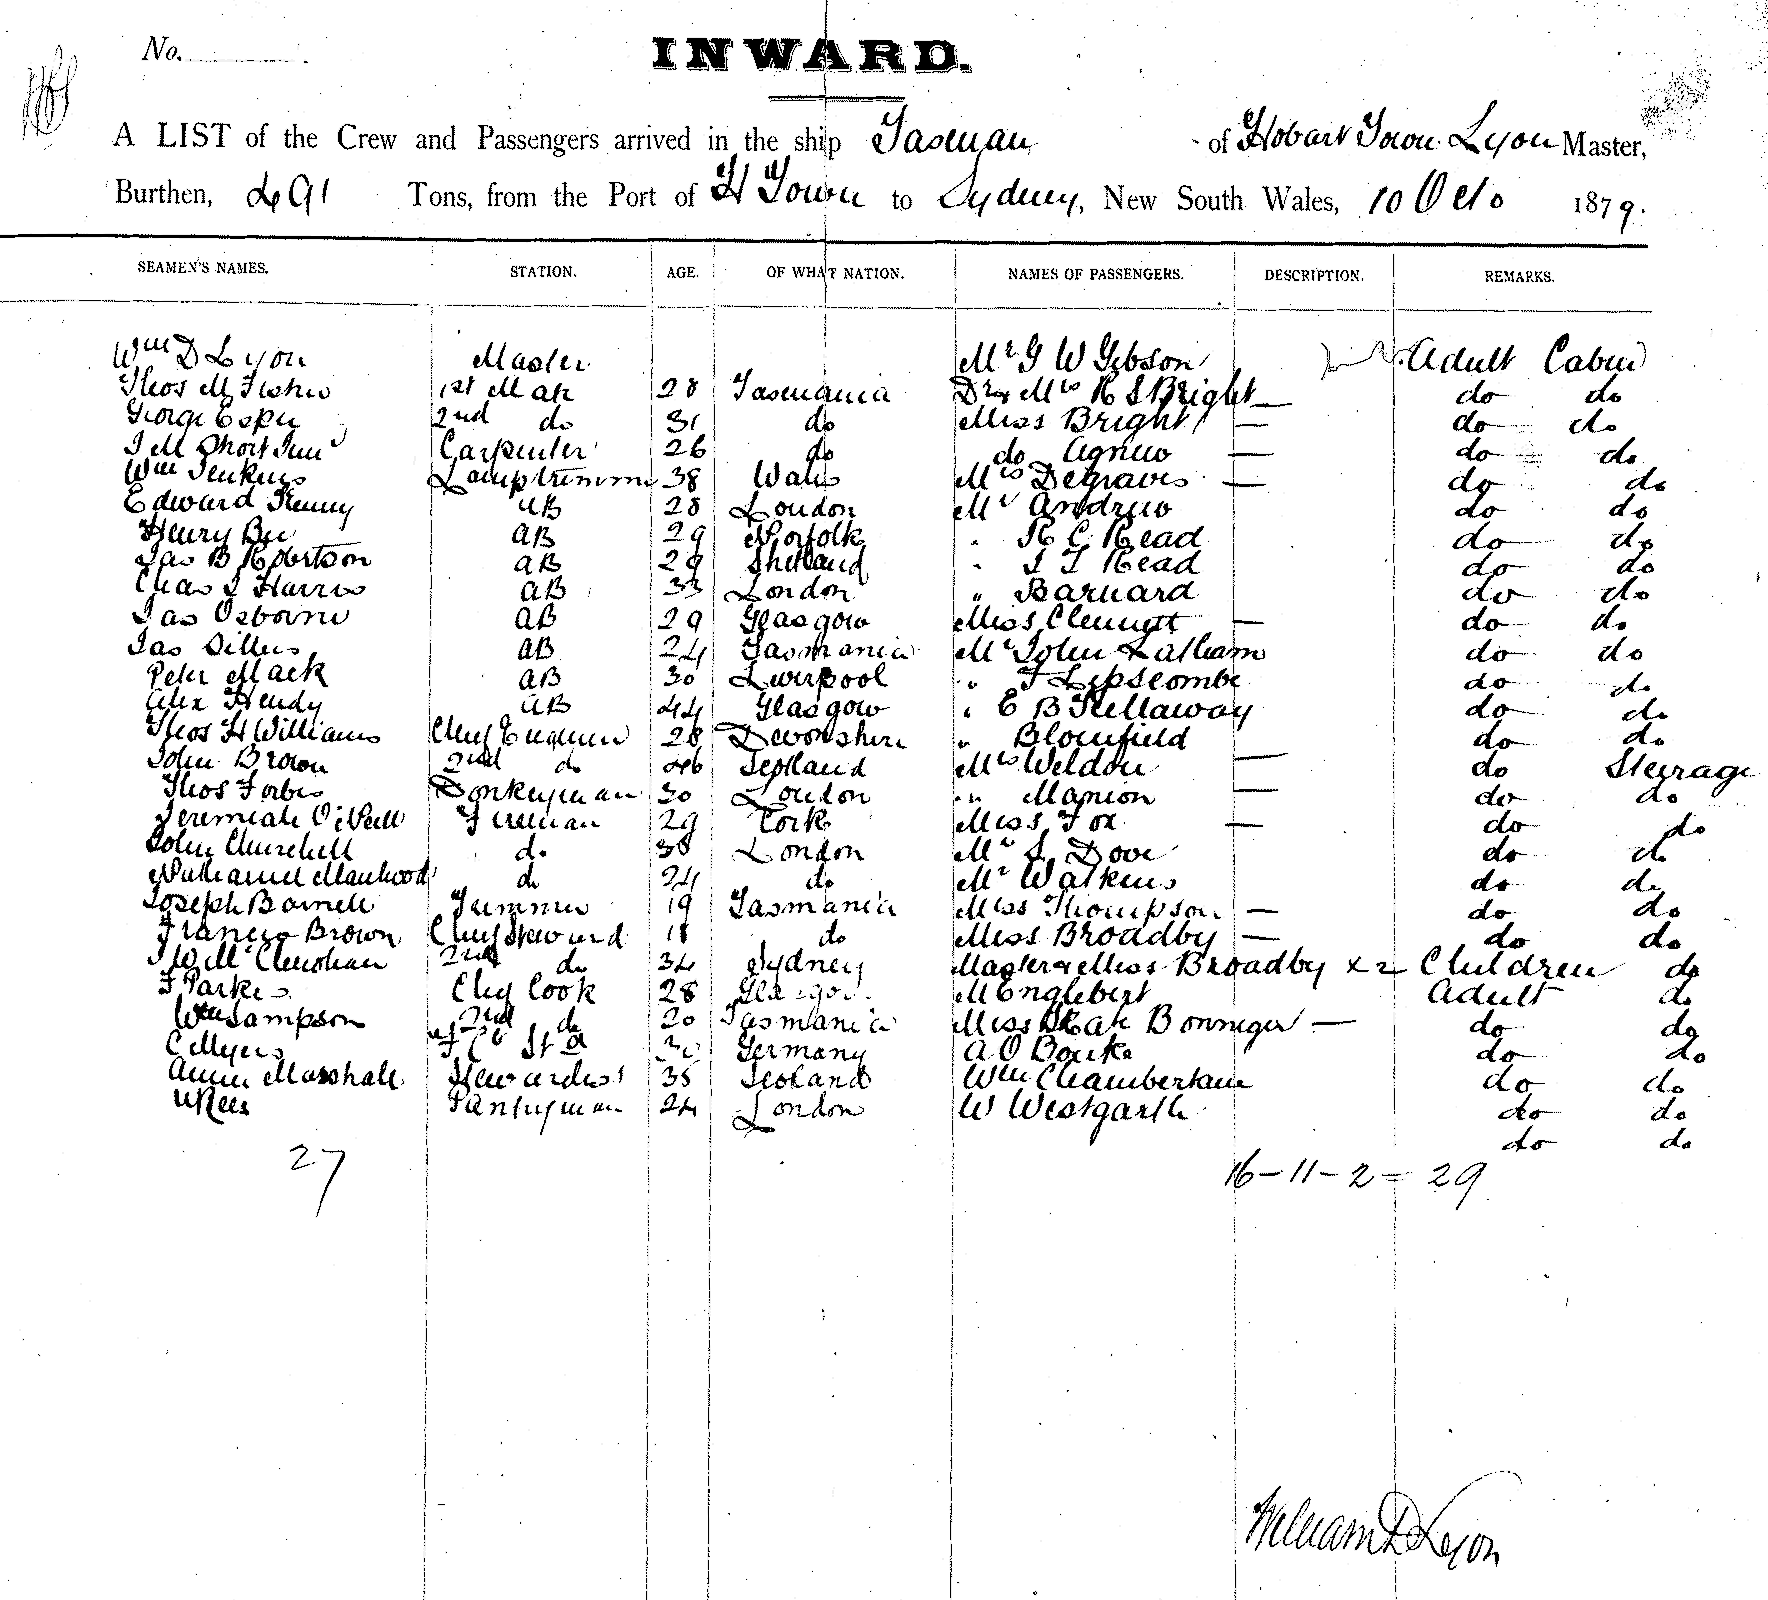 No.
INWARD.
A LIST of the Crew and Passengers arrived in the ship Tasman of Hobart Town Lyon Master,
Burthen, 491 Tons, from the Port of H Town to Sydney, New South Wales, 10 Octo 1879.
SEAMEN'S NAMES. STATION. AGE. OF WHAT NATION. NAMES OF PASSENGERS. DESCRIPTION. REMARKS.
Wm D Lyon Master Mr G W Gibson Adult Cabin
Thos M Fisher 1st Mate 28 Tasmania Dr & Mrs R S Bright — do do
George Espie 2nd do 31 do Miss Bright — do do
J M Short Junr Carpenter 26 do do Agnew — do do
Wm Jenkins Lamptrimmer 38 Wales Mrs Degraves — do do
Edward Kenny AB 28 London Mr Andrew do do
Henry AB 29 Norfolk " R C Read do do
Jas B Robertson AB 29 Shetland " J T Read do do
Chas J Harris AB 33 London " Barnard do do
Jas Osborne AB 29 Glasgow Miss Clennett — do do
Jas AB 24 Tasmania Mr John Latham do do
Peter Mack AB 30 Liverpool " F Lipscombe do do
Alex Hendy AB 44 Glasgow " E B Kellaway do do
Thos H Williams Chief Engineer 28 Devonshire " Blomfield do do
John Brown 2nd do 46 Scotland Mrs Weldon — do Steerage
Thos Forbes Donkeyman 30 London " Manion — do do
Jeremiah O'Neill Fireman 29 Cork Miss Fox — do do
John Churchill do 38 London Mr S Dove do do
Nathaniel Maulwood do 24 do Mr Watkins do do
Joseph Barnett Trimmer 19 Tasmania Miss Thompson — do do
Francis Brown Chief Steward do Miss Broadby — do do
J W McClenahan 2nd do 34 Sydney Master & Miss Broadby x 2 Children do
F Parkes Chief Cook 28 Glasgow M Englebert Adult do
Wm Sampson 2nd do 20 Tasmania Miss Kate Bonniger — do do
C Myers 30 Germany A O Bourke do do
Annie Marshall Stewardess 35 Scotland Wm Chamberlain do do
W Rees Pantryman 24 London W Westgarth do do
do do
27 16 – 11 – 2 = 29
William D Lyon